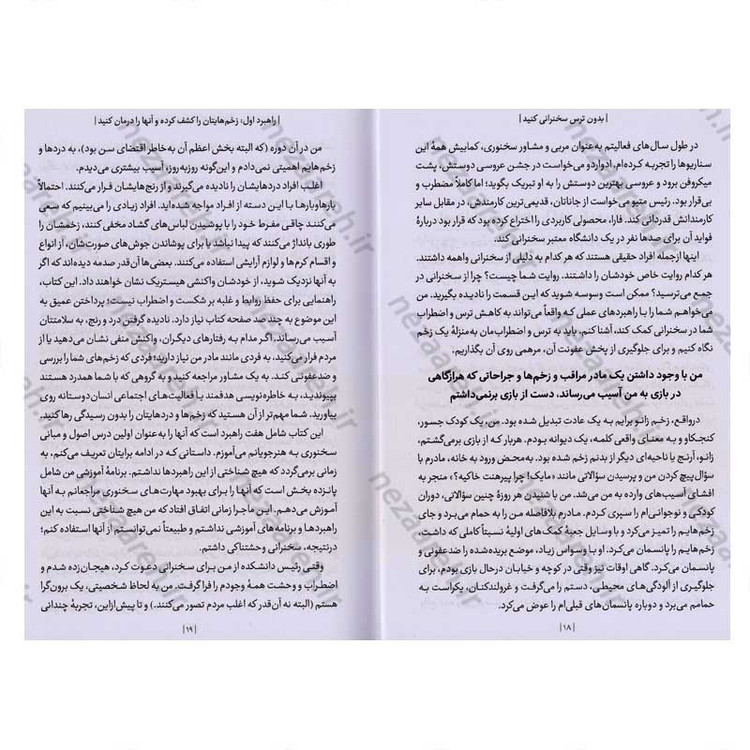 | بدون ترس سخنرانی کنید |
در طول سال‌های فعالیتم به‌عنوان مربی و مشاور سخنوری، کمابیش همهٔ این
سناریوها را تجربه کرده‌ام. ادواردو می‌خواست در جشن عروسی دوستش، پشت
میکروفن برود و عروسی بهترین دوستش را به او تبریک بگوید؛ اما کاملاً مضطرب و
بی‌قرار بود. رئیس متیو می‌خواست از جاناتان، قدیمی‌ترین کارمندش، در مقابل سایر
کارمندانش قدردانی کند. فارا، محصولی کاربردی را اختراع کرده بود که قرار بود دربارهٔ
فواید آن برای صدها نفر در یک دانشگاه معتبر سخنرانی کند.
اینها ازجمله افراد حقیقی هستند که هر کدام به دلیلی از سخنرانی واهمه داشتند.
هر کدام روایت خاص خودشان را داشتند. روایت شما چیست؟ چرا از سخنرانی در
جمع می‌ترسید؟ ممکن است وسوسه شوید که این قسمت را نادیده بگیرید. من
می‌خواهم شما را با راهبردهای عملی که واقعاً می‌تواند به کاهش ترس و اضطراب
شما در سخنرانی کمک کند، آشنا کنم. باید به ترس و اضطراب‌مان به‌منزلهٔ یک زخم
نگاه کنیم و برای جلوگیری از پخش عفونت آن، مرهمی روی آن بگذاریم.
من با وجود داشتن یک مادر مراقب و زخم‌ها و جراحاتی که هرازگاهی
در بازی به من آسیب می‌رساند، دست از بازی برنمی‌داشتم
درواقع، زخم زانو برایم به یک عادت تبدیل شده بود. من، یک کودک جسور،
کنجکاو و به معنای واقعی کلمه، یک دیوانه بودم. هربار که از بازی برمی‌گشتم،
زانو، آرنج یا ناحیه‌ای دیگر از بدنم زخم شده بود. به‌محض ورود به خانه، مادرم با
سؤال‌پیچ کردن من و پرسیدن سؤالاتی مانند «مایک! چرا پیرهنت خاکیه؟» منجر به
افشای آسیب‌های وارده به من می‌شد. من با شنیدن هر روزهٔ چنین سؤالاتی، دوران
کودکی و نوجوانی‌ام را سپری کردم. مادرم بلافاصله من را به حمام می‌برد و جای
زخم‌هایم را تمیز می‌کرد و با وسایل جعبهٔ کمک‌های اولیهٔ نسبتاً کاملی که داشت،
زخم‌هایم را پانسمان می‌کرد. او با وسواس زیاد، موضع بریده‌شده را ضدعفونی و
پانسمان می‌کرد. گاهی اوقات نیز وقتی در کوچه و خیابان درحال بازی بودم، برای
جلوگیری از آلودگی‌های محیطی، دستم را می‌گرفت و غرولندکنان، یکراست به
حمامم می‌برد و دوباره پانسمان‌های قبلی‌ام را عوض می‌کرد.
| ۱۸ |
| راهبرد اول: زخم‌هایتان را کشف کرده و آنها را درمان کنید |
من در آن دوره (که البته بخش اعظم آن به‌خاطر اقتضای سن بود)، به دردها و
زخم‌هایم اهمیتی نمی‌دادم و این‌گونه روزبه‌روز، آسیب بیشتری می‌دیدم.
اغلب افراد دردهایشان را نادیده می‌گیرند و از رنج‌هایشان فرار می‌کنند. احتمالاً
بارهاوبارها با این دسته از افراد مواجه شده‌اید. افراد زیادی را می‌بینیم که سعی
می‌کنند چاقی مفرط خود را با پوشیدن لباس‌های گشاد مخفی کنند، زخمشان را
طوری بانداژ می‌کنند که پیدا نباشد یا برای پوشاندن جوش‌های صورت‌شان، از انواع
و اقسام کرم‌ها و لوازم آرایشی استفاده می‌کنند. بعضی‌ها آن‌قدر صدمه دیده‌اند که اگر
به آنها نزدیک شوید، از خودشان واکنشی هیستریک نشان خواهند داد. این کتاب،
راهنمایی برای حفظ روابط و غلبه بر شکست و اضطراب نیست؛ پرداختن عمیق به
این موضوع به چند صد صفحه کتاب نیاز دارد. نادیده گرفتن درد و رنج، به سلامتتان
آسیب می‌رساند. اگر مدام به رفتارهای دیگران، واکنش منفی نشان می‌دهید یا از
مردم فرار می‌کنید، به فردی مانند مادر من نیاز دارید؛ فردی که زخم‌های شما را بررسی
و ضدعفونی کند. به یک مشاور مراجعه کنید و به گروهی که با شما همدرد هستند
بپیوندید، با خاطره‌نویسی هدفمند یا فعالیت‌های اجتماعی انسان‌دوستانه روی
بیاورید. شما مهم‌تر از آن هستید که زخم‌ها و دردهایتان را بدون رسیدگی رها کنید.
این کتاب شامل هفت راهبرد است که آنها را به‌عنوان اولین درس اصول و مبانی
سخنوری به هنرجویانم می‌آموزم. داستانی که در ادامه برایتان تعریف می‌کنم، به
زمانی برمی‌گردد که هیچ شناختی از این راهبردها نداشتم. برنامهٔ آموزشی من شامل
پانزده بخش است که آنها را برای بهبود مهارت‌های سخنوری مراجعانم به آنها
آموزش می‌دهم. این ماجرا زمانی اتفاق افتاد که من هیچ شناختی نسبت به این
راهبردها و برنامه‌های آموزشی نداشتم و طبیعتاً نمی‌توانستم از آنها استفاده کنم؛
درنتیجه، سخنرانی وحشتناکی داشتم.
وقتی رئیس دانشکده از من برای سخنرانی دعوت کرد، هیجان‌زده شدم و
اضطراب و وحشت همهٔ وجودم را فرا گرفت. من به لحاظ شخصیتی، یک برون‌گرا
هستم (البته نه آن‌قدر که اغلب مردم تصور می‌کنند.) و تا پیش‌ازاین، تجربهٔ چندانی
| ۱۹ |
nezaareh.ir